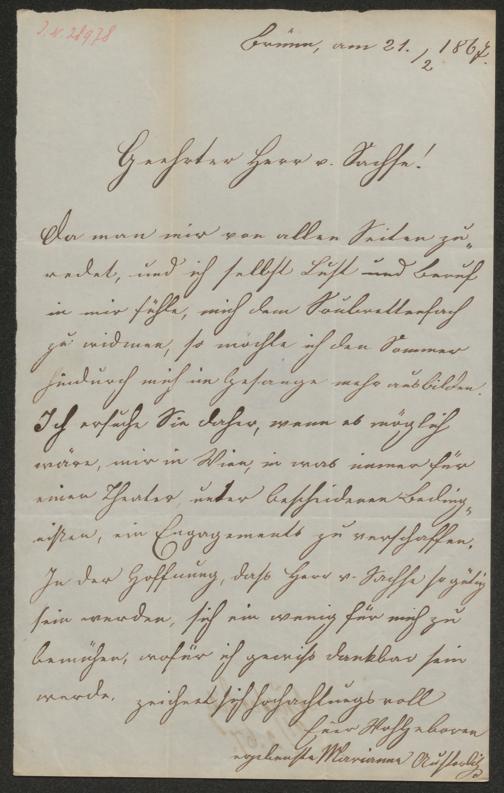 J. N. 28978
Brünn, am 21./2 1867.
Geehrter Herr v. Sachse!
Da man mir von allen Seiten zu„
redet, und ich selbst Lust und Beruf
in mir fühle, mich dem Soubrettenfach
zu widmen, so möchte ich den Sommer
hindurch mich im Gesange mehr ausbilden.
Ich ersuche Sie daher, wenn es möglich
wäre, mir in Wien, in was immer für
einen Theater unter bescheidenen Beding„
nißen, ein Engagements zu verschaffen.
In der Hoffnung, daß Herr v. Sachse so gütig
sein werden, sich ein wenig für mich zu
bemühen, wofür ich gewiß dankbar sein
werde, zeichnet sich hochachtungsvoll
Euer Wohlgeboren
ergebenste Marianne